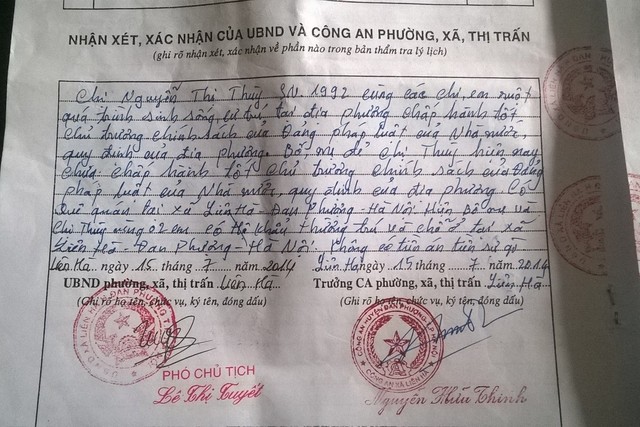 NHẬN XÉT, XÁC NHẬN CỦA UBND VÀ CÔNG AN PHƯỜNG, XÃ, THỊ TRẤN
(ghi rõ nhận xét, xác nhận về phần nào trong bản thẩm tra lý lịch)
Chị Nguyễn Thị Thúy S.N. 1992 cùng các chị, em ruột
quá trình sinh sống cư trú tại địa phương chấp hành tốt
chủ trương chính sách của Đảng pháp luật của Nhà nước,
quy định của địa phương. Bố, mẹ đẻ chị Thúy hiện nay
chấp hành tốt chủ trương chính sách của Đảng
pháp luật của Nhà nước, quy định của địa phương. Có
quê quán tại xã Liên Hà - Đan Phượng - Hà Nội. Hiện bố mẹ và
chị Thúy cùng 02 em có hộ khẩu thường trú và chỗ ở tại xã
Liên Hà - Đan Phượng - Hà Nội. Không có tiền án tiền sự gì
Liên Hà, ngày 15 tháng 7 năm 2014
Liên Hà, ngày 15 tháng 7 năm 2014
UBND phường, xã, thị trấn Liên Hà
Trưởng CA phường, xã, thị trấn Liên Hà
(Ghi rõ họ tên, chức vụ, ký tên, đóng dấu)
(Ghi rõ họ tên, chức vụ, ký tên, đóng dấu)
PHÓ CHỦ TỊCH
Lê Thị Tuyết
CÔNG AN HUYỆN ĐAN PHƯỢNG T.P HÀ NỘI
CÔNG AN XÃ LIÊN HÀ
Nguyễn Hữu Thinh